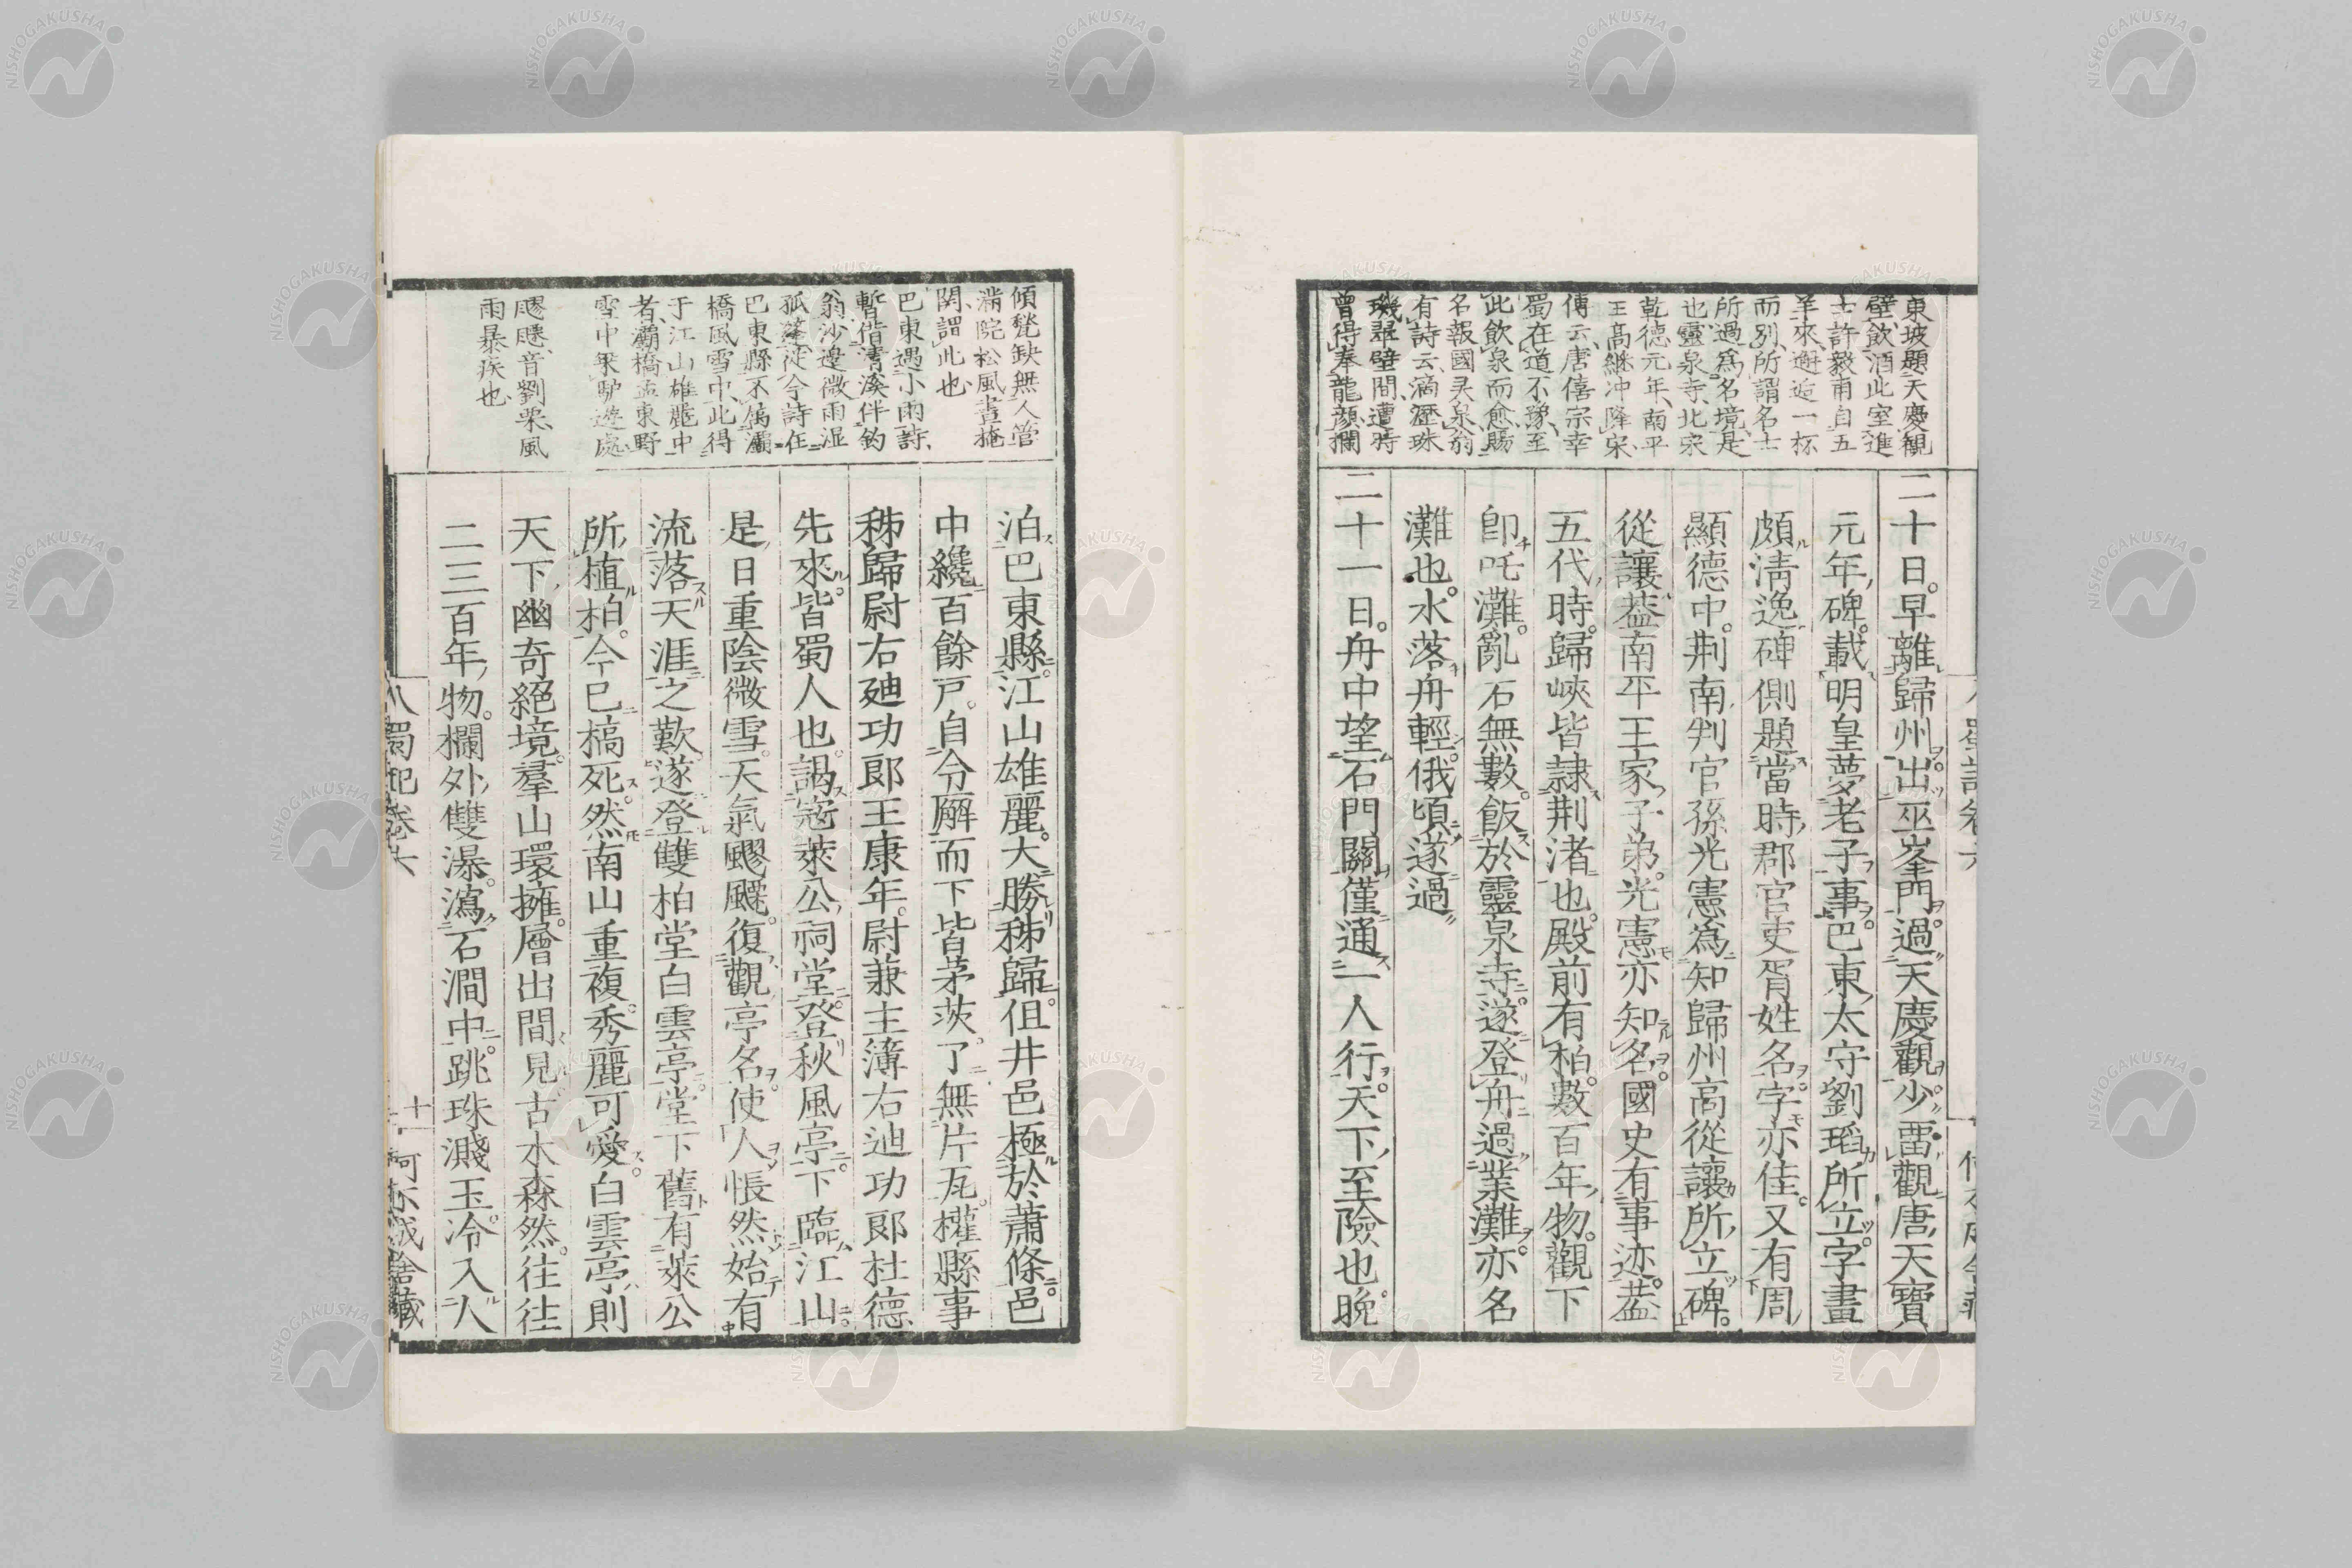 東坡題天慶觀
壁飲酒此室進
士許毅甫自五
羊來邂逅一杯
而別所謂名士
所過爲名境是
也靈泉寺北宋
乾德元年南平
王高繼冲降宋
傳云唐僖宗幸
蜀在道不豫至
此飲泉而愈賜
名報國灵泉翁
有詩云滴瀝珠
璣翠壁間遭時
曾得奉龍顔欄
二十日早離歸州出巫峯門過天慶觀少畱觀唐天寶
元年碑載明皇夢老子事巴東太守劉瑫所立字畫
頗淸逸碑側題當時郡官吏胥姓名字亦佳又有周
顯德中荆南判官孫光憲爲知歸州高從讓所立碑
從讓葢南平王家子弟光憲亦知名國史有事迹葢
五代時歸峽皆隷荆渚也殿前有柏數百年物觀下
卽吒灘亂石無數飯於靈泉寺遂登舟過業灘亦名
灘也水落舟輕俄頃遂過
二十一日舟中望石門關僅通一人行天下至險也晚
傾甃缺無人管
滿院松風晝掩
関謂此也
巴東遇小雨詩
暫借清溪伴釣
翁沙邊微雨湿
孤篷從今詩在
巴東縣不属灞
橋風雪中此得
于江山雄麗中
者灞橋孟東野
雪中乗驢遊處
飂飂音劉栗風
雨暴疾也
泊巴東縣江山雄麗大勝秭歸但井邑極於蕭條邑
中纔百餘戸自令廨而下皆茅茨了無片瓦權縣事
秭歸尉右廸功郞王康年尉兼主簿右迪功郞杜德
先來皆蜀人也謁寇萊公祠堂登秋風亭下臨江山
是日重陰微雪天氣飂飃復觀亭名使人悵然始有
流落天涯之歎遂登雙柏堂白雲亭堂下舊有萊公
所植柏今已槁死然南山重複秀麗可愛白雲亭則
天下幽奇絕境羣山環擁層出間見古木森然往往
二三百年物欄外雙瀑瀉石澗中跳珠濺玉冷入人
入蜀記卷六
十一